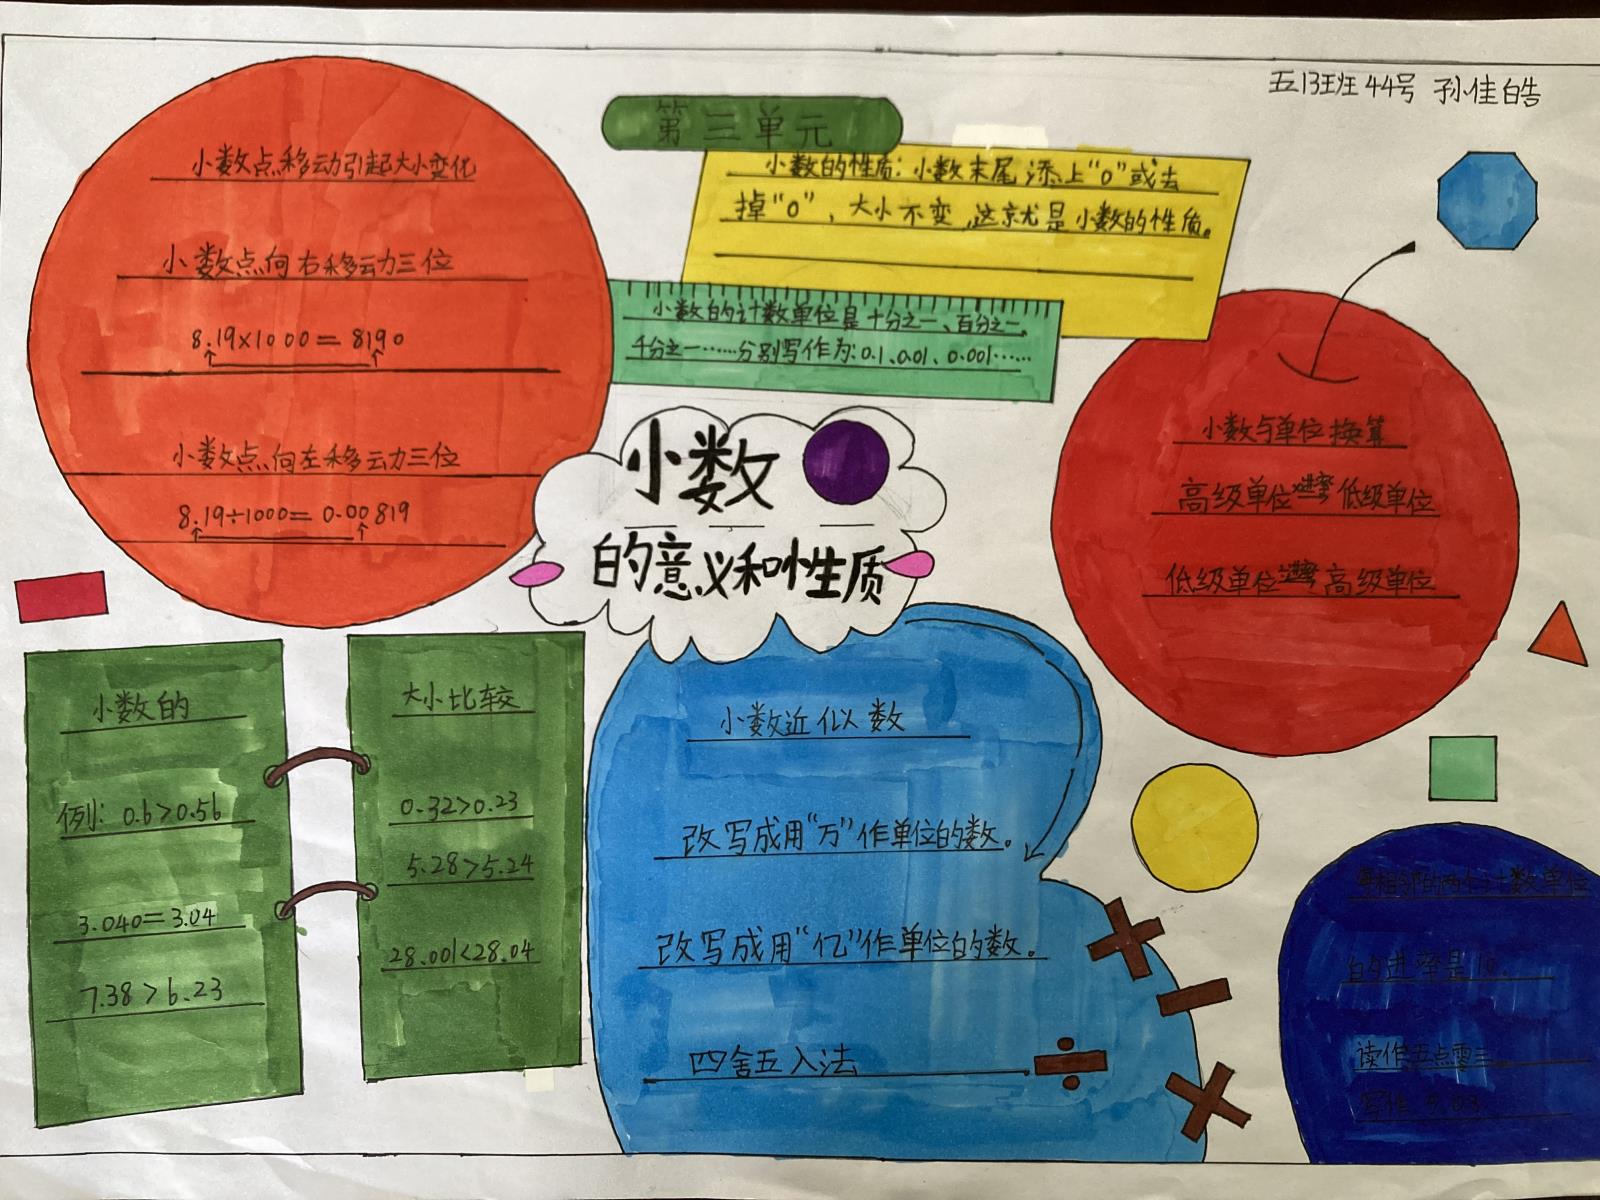 五13班 44号 孙佳皓
第三单元
小数点移动引起大小变化
小数点向右移动三位
8.19×1000=8190
小数点向左移动三位
8.19÷1000=0.00819
小数的性质：小数末尾添上“0”或去
掉“0”，大小不变，这就是小数的性质。
小数的计数单位是十分之一、百分之一、
千分之一……分别写作为:0.1、0.01、0.001……
小数
的意义和性质
小数与单位换算
高级单位 低级单位
低级单位 高级单位
小数的
例：0.6>0.56
3.040=3.04
7.38>6.23
大小比较
0.32>0.23
5.28>5.24
28.001<28.04
小数近似数
改写成用“万”作单位的数。
改写成用“亿”作单位的数。
四舍五入法
每相邻的两个计数单位
的进率是10。
读作五点零三
写作 5.03